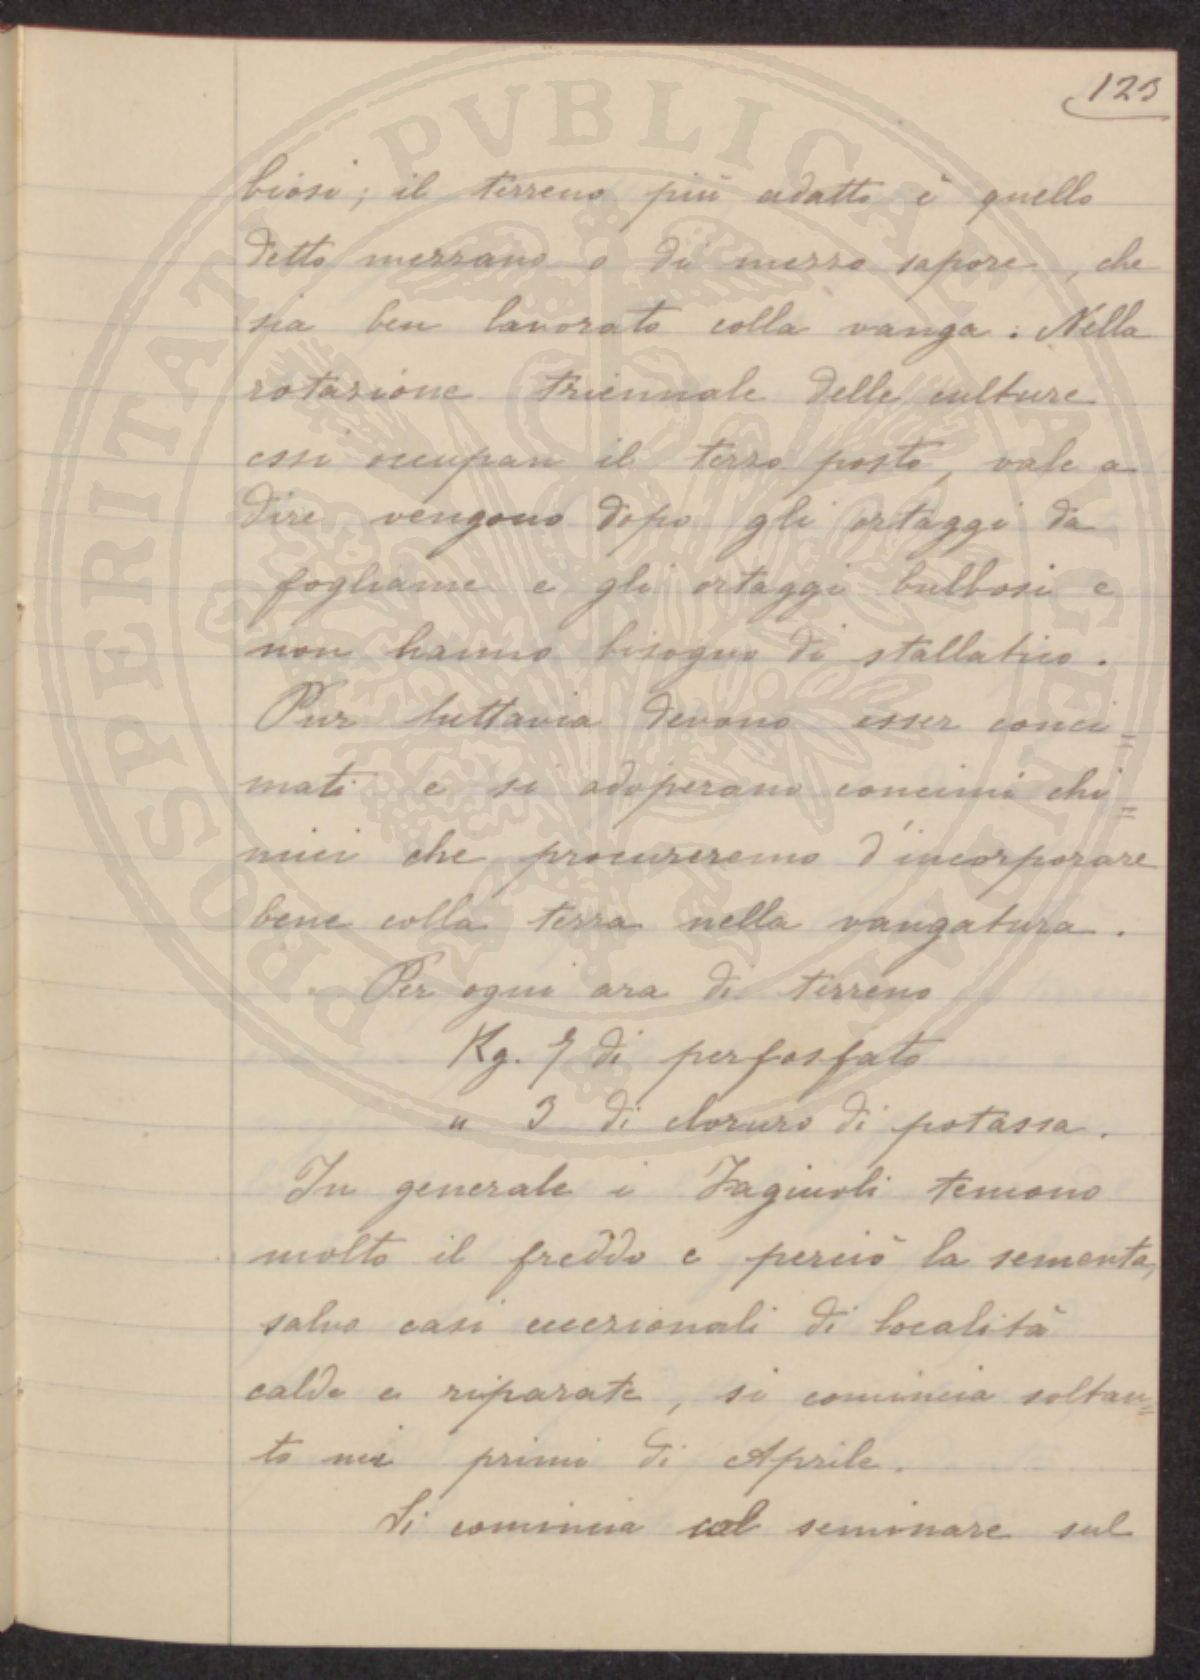 123
biosi; il terreno più adatto è quello
detto mezzano o di mezzo sapore, che
sia ben lavorato colla vanga. Nella
rotazione triennale delle culture
essi occupan il terzo posto, vale a
dire vengono dopo gli ortaggi da
fogliame e gli ortaggi bulbosi e
non hanno bisogno di stallatico.
Pur tuttavia devono esser conci=
mati e si adoperano concimi chi=
mici che procureremo d'incorporare
bene colla terra nella vangatura.
Per ogni ara di terreno
Kg. 7 di perfosfato
" 3 di cloruro di potassa.
In generale i Fagiuoli temono
molto il freddo e perciò la sementa,
salvo casi eccezionali di località
calde e riparate, si comincia soltan=
to nei primi di Aprile.
Si comincia col seminare sul
PROSPERITATI PVBLICAE AVGENDAE